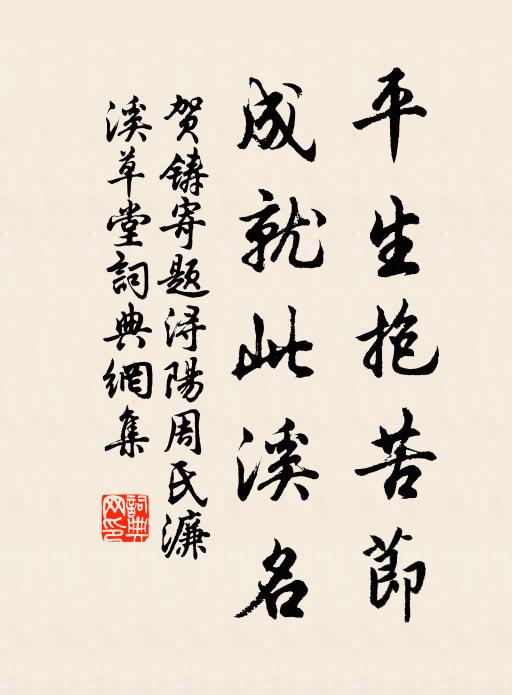 平生抱苦節
成就此溪名
贺鑄寄题浔陽周氏濂
溪草堂詞典網集
詞典
网印